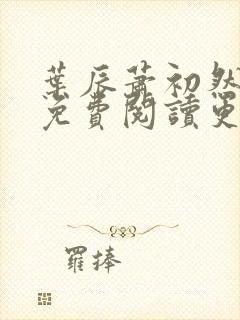 葉辰蕭初然
免費閱讀更
羅捧